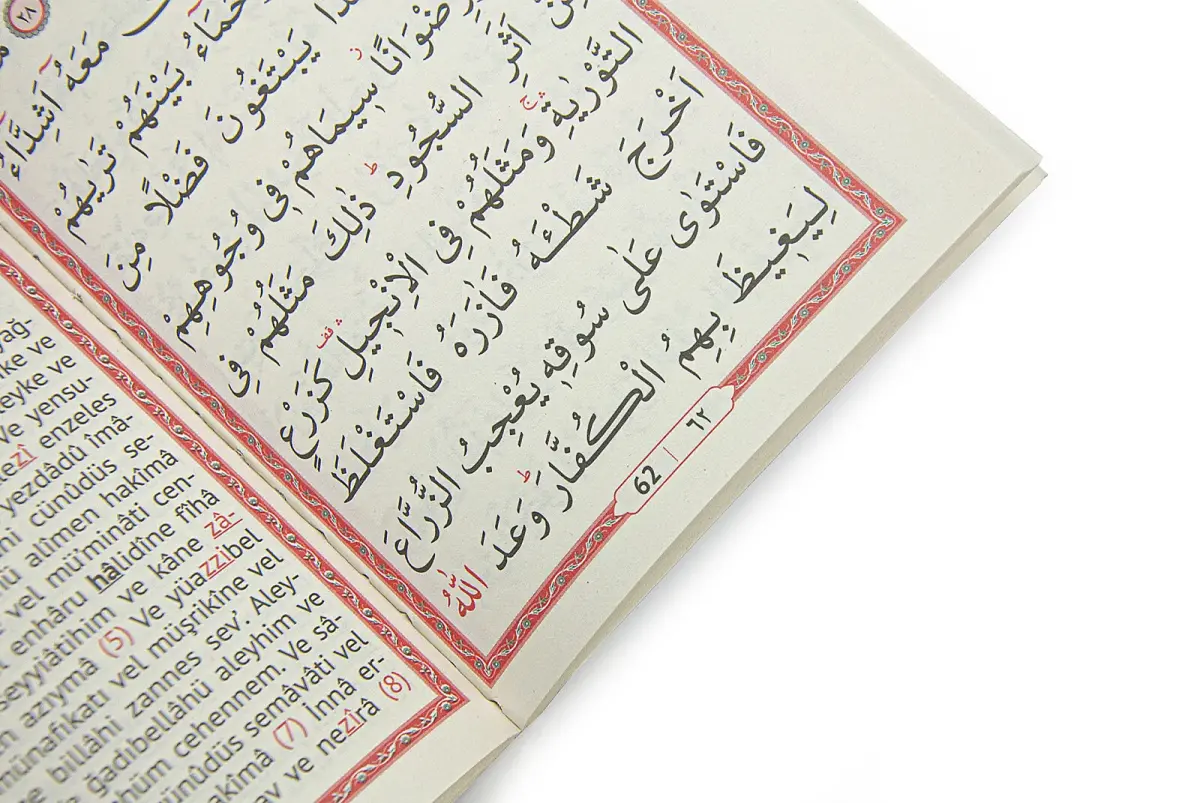 ٢٨
مَعَهُٓ اَشِدَّٓاءُ
بَيْنَهُمْ تَرٰيهُمْ
يَبْتَغُونَ فَضْلًا مِنَ
سٖيمَاهُمْ فٖى وُجُوهِهِمْ
اَثَرِ السُّجُودِ ذٰلِكَ مَثَلُهُمْ فِى
التَّوْرٰيةِ وَمَثَلُهُمْ فِى الْاِنْجٖيلِ كَزَرْعٍ
اَخْرَجَ شَطْـَٔهُ فَاٰزَرَهُ فَاسْتَغْلَظَ
فَاسْتَوٰى عَلٰى سُوقِهٖ يُعْجِبُ الزُّرَّاعَ
لِيَغٖيظَ بِهِمُ الْكُفَّارَ وَعَدَ اللّٰهُ
62 | ٦٢
yağ-
ve
ve
ve yensu-
enzeles
yezdâdû îmâ-
cünûdüs se-
alîmen hakîmâ
vel mü'minâti cen-
enhâru hâlidîne fîhâ
seyyiâtihim ve kâne zâ-
azıymâ (5) Ve yüazzibel
münafikatı vel müşrikîne vel
billâhi zannes sev'. Aley-
ğadıbellâhü aleyhim ve
cehennem. Ve sâ-
semâvâti vel
(7) İnnâ er-
ve nezîrâ (8)